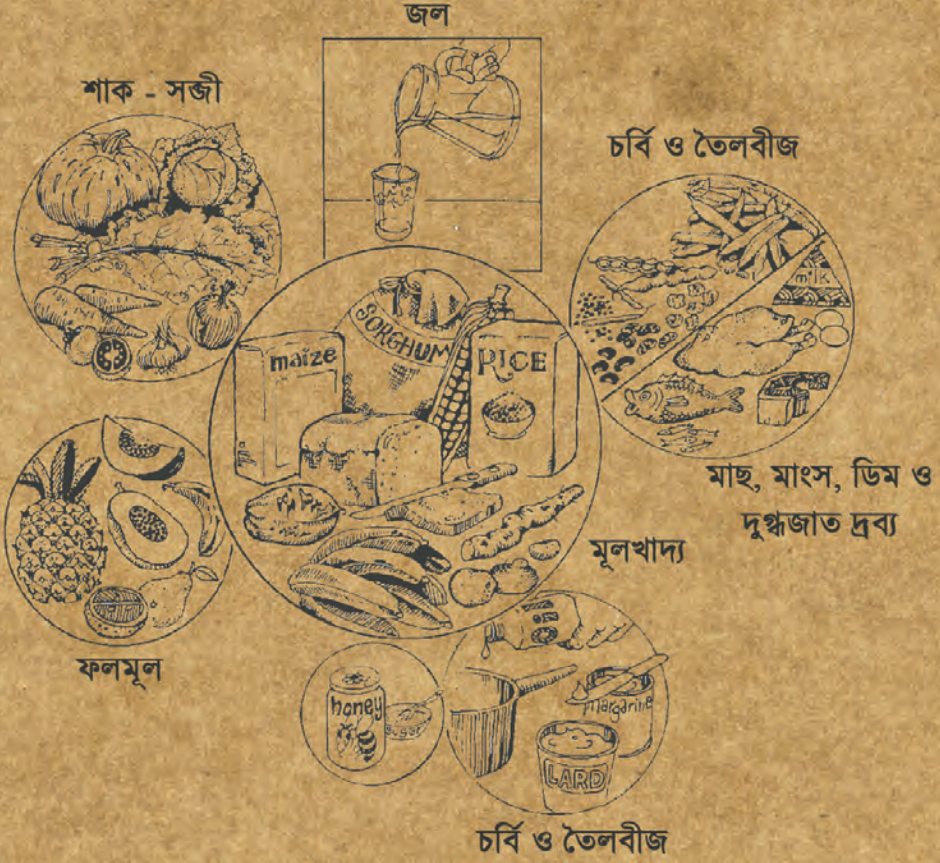 জল
শাক - সব্জী
চর্বি ও তৈলবীজ
milk
SORGHUM
maize
RICE
মাছ, মাংস, ডিম ও
দুগ্ধজাত দ্রব্য
মূলখাদ্য
ফলমূল
Oil
honey
sugar
margarine
LARD
চর্বি ও তৈলবীজ